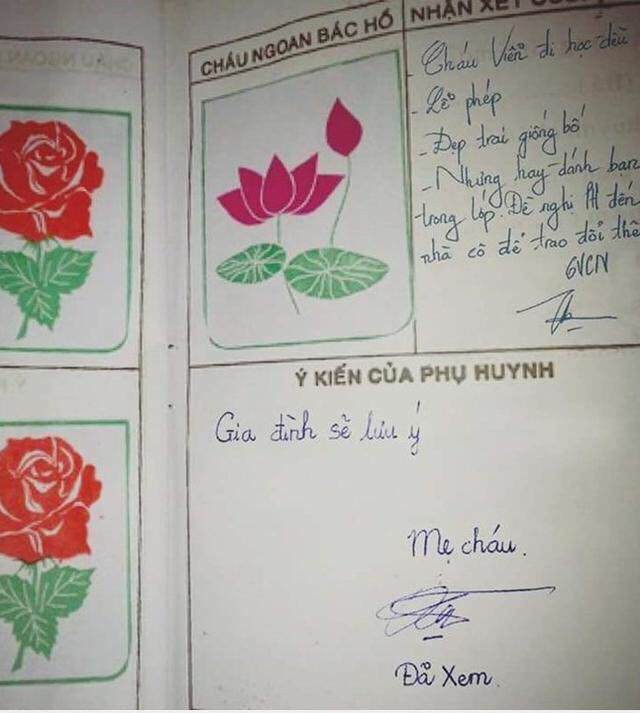 CHÁU NGOAN BÁC HỒ
NHẬN XÉT
- Cháu Viễn đi học đều
- Lễ phép
- Đẹp trai giống bố
- Nhưng hay đánh bạn
trong lớp. Đề nghị PH đến
nhà cô để trao đổi thê
GVCN
Ý KIẾN CỦA PHỤ HUYNH
Gia đình sẽ lưu ý
Mẹ cháu.
Đã Xem.